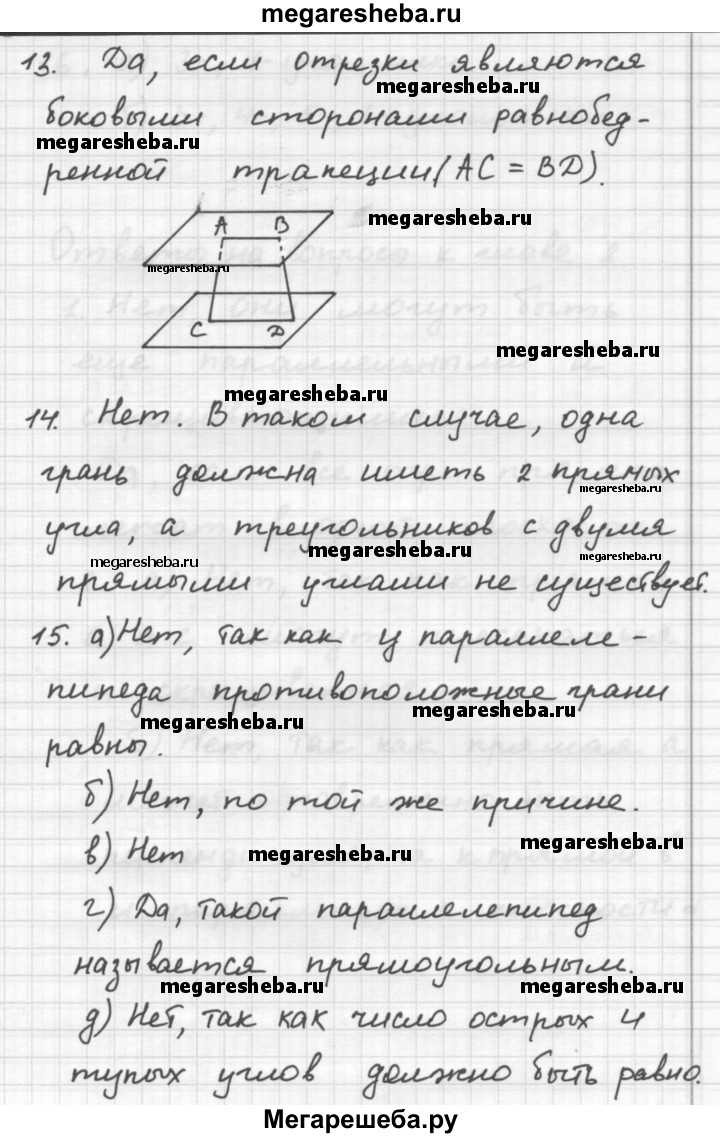 megaresheba.ru
13. Да, если отрезки являются
megaresheba.ru
боковыми сторонами равнобед-
megaresheba.ru
ренной трапеции (AC = BD).
megaresheba.ru
A B
megaresheba.ru
C D
megaresheba.ru
megaresheba.ru
14. Нет. В таком случае, одна
грань должна иметь 2 прямых
megaresheba.ru
угла, а треугольников с двумя
megaresheba.ru
megaresheba.ru
megaresheba.ru
прямыми углами не существует.
15. а) Нет, так как у параллеле-
пипеда противоположные грани
megaresheba.ru
megaresheba.ru
равны.
б) Нет, по той же причине.
в) Нет
megaresheba.ru
megaresheba.ru
г) Да, такой параллелепипед
называется прямоугольным.
megaresheba.ru
megaresheba.ru
д) Нет, так как число острых и
тупых углов должно быть равно.
Мегарешеба.ру